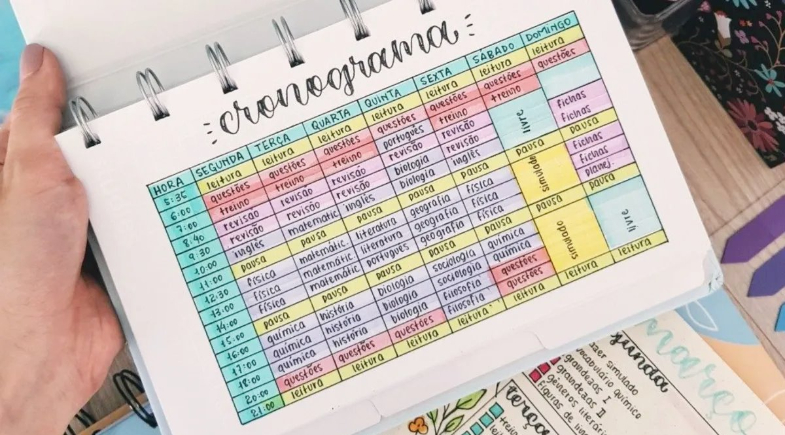 cronograma
HORA SEGUNDA TERÇA QUARTA QUINTA SEXTA SÁBADO DOMINGO
5:35 leitura leitura leitura leitura leitura leitura leitura
6:00 questões questões questões questões questões questões questões
7:00 treino treino treino português treino treino
8:40 revisão revisão revisão revisão revisão livre fichas
9:30 revisão revisão revisão biologia revisão fichas
10:00 inglês matemátic. inglês biologia inglês pausa
11:00 pausa pausa pausa pausa pausa pausa fichas
12:30 física matemátic. literatura geografia física simulado fichas
13:00 física matemátic. literatura geografia física planej.
14:00 física matemátic. português geografia física pausa
15:00 pausa pausa pausa pausa pausa pausa
16:00 química história biologia sociologia química simulado livre
17:00 química história biologia sociologia química
18:00 química história biologia filosofia questões
20:00 questões questões questões filosofia questões
21:00 leitura leitura leitura leitura leitura leitura leitura
simulado
vocabulário químico
grandezas I
grandezas II
gêneros literários
figuras de
março
terça
treino